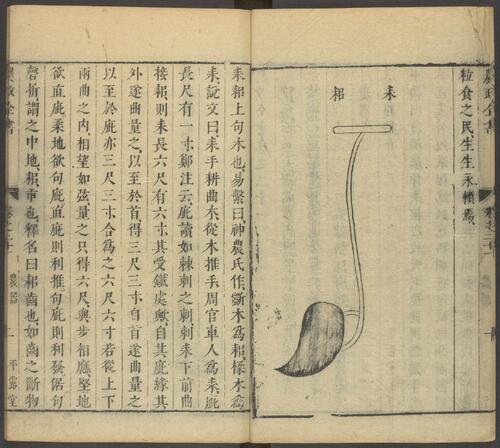 粒食之民生生永賴焉
耒
耜
耒耜上句木也易繫曰神農氏作斲木爲耜揉木爲
耒說文曰耒手耕曲木從木推手周官車人爲耒庛
長尺有一寸鄭注云庛讀如棘刺之刺刺耒下前曲
接耜則耒長六尺有六寸其受鐵處歟自其庛緣其
外遂曲量之以至於首得三尺三寸自首遂曲量之
以至於庛亦三尺三寸合爲之六尺六寸若從上下
兩曲之內相望如弦量之只得六尺與步相應堅地
欲直庛柔地欲句庛直庛則利推句庛則利發倨句
磬折謂之中地耜臿也釋名曰耜齒也如齒之斷物
農政全書
農器
一
平露堂